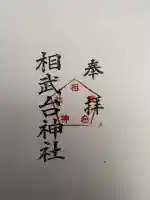 奉拝
相武台神社
相武台神社